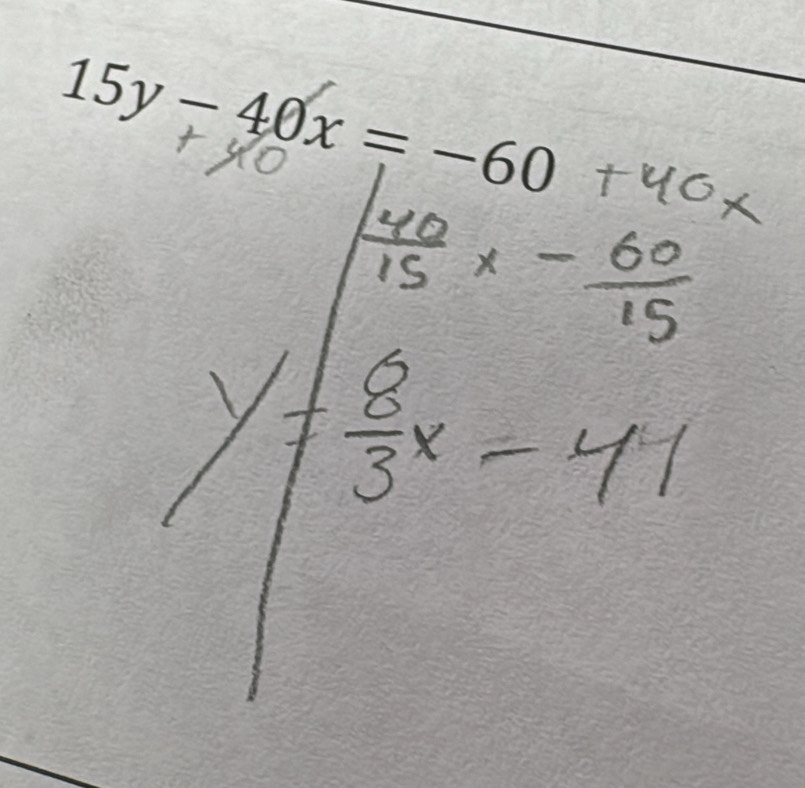 15y − 40x = −60 + 40x
+ 40
40/15 x − 60/15
y = 8/3 x − 41